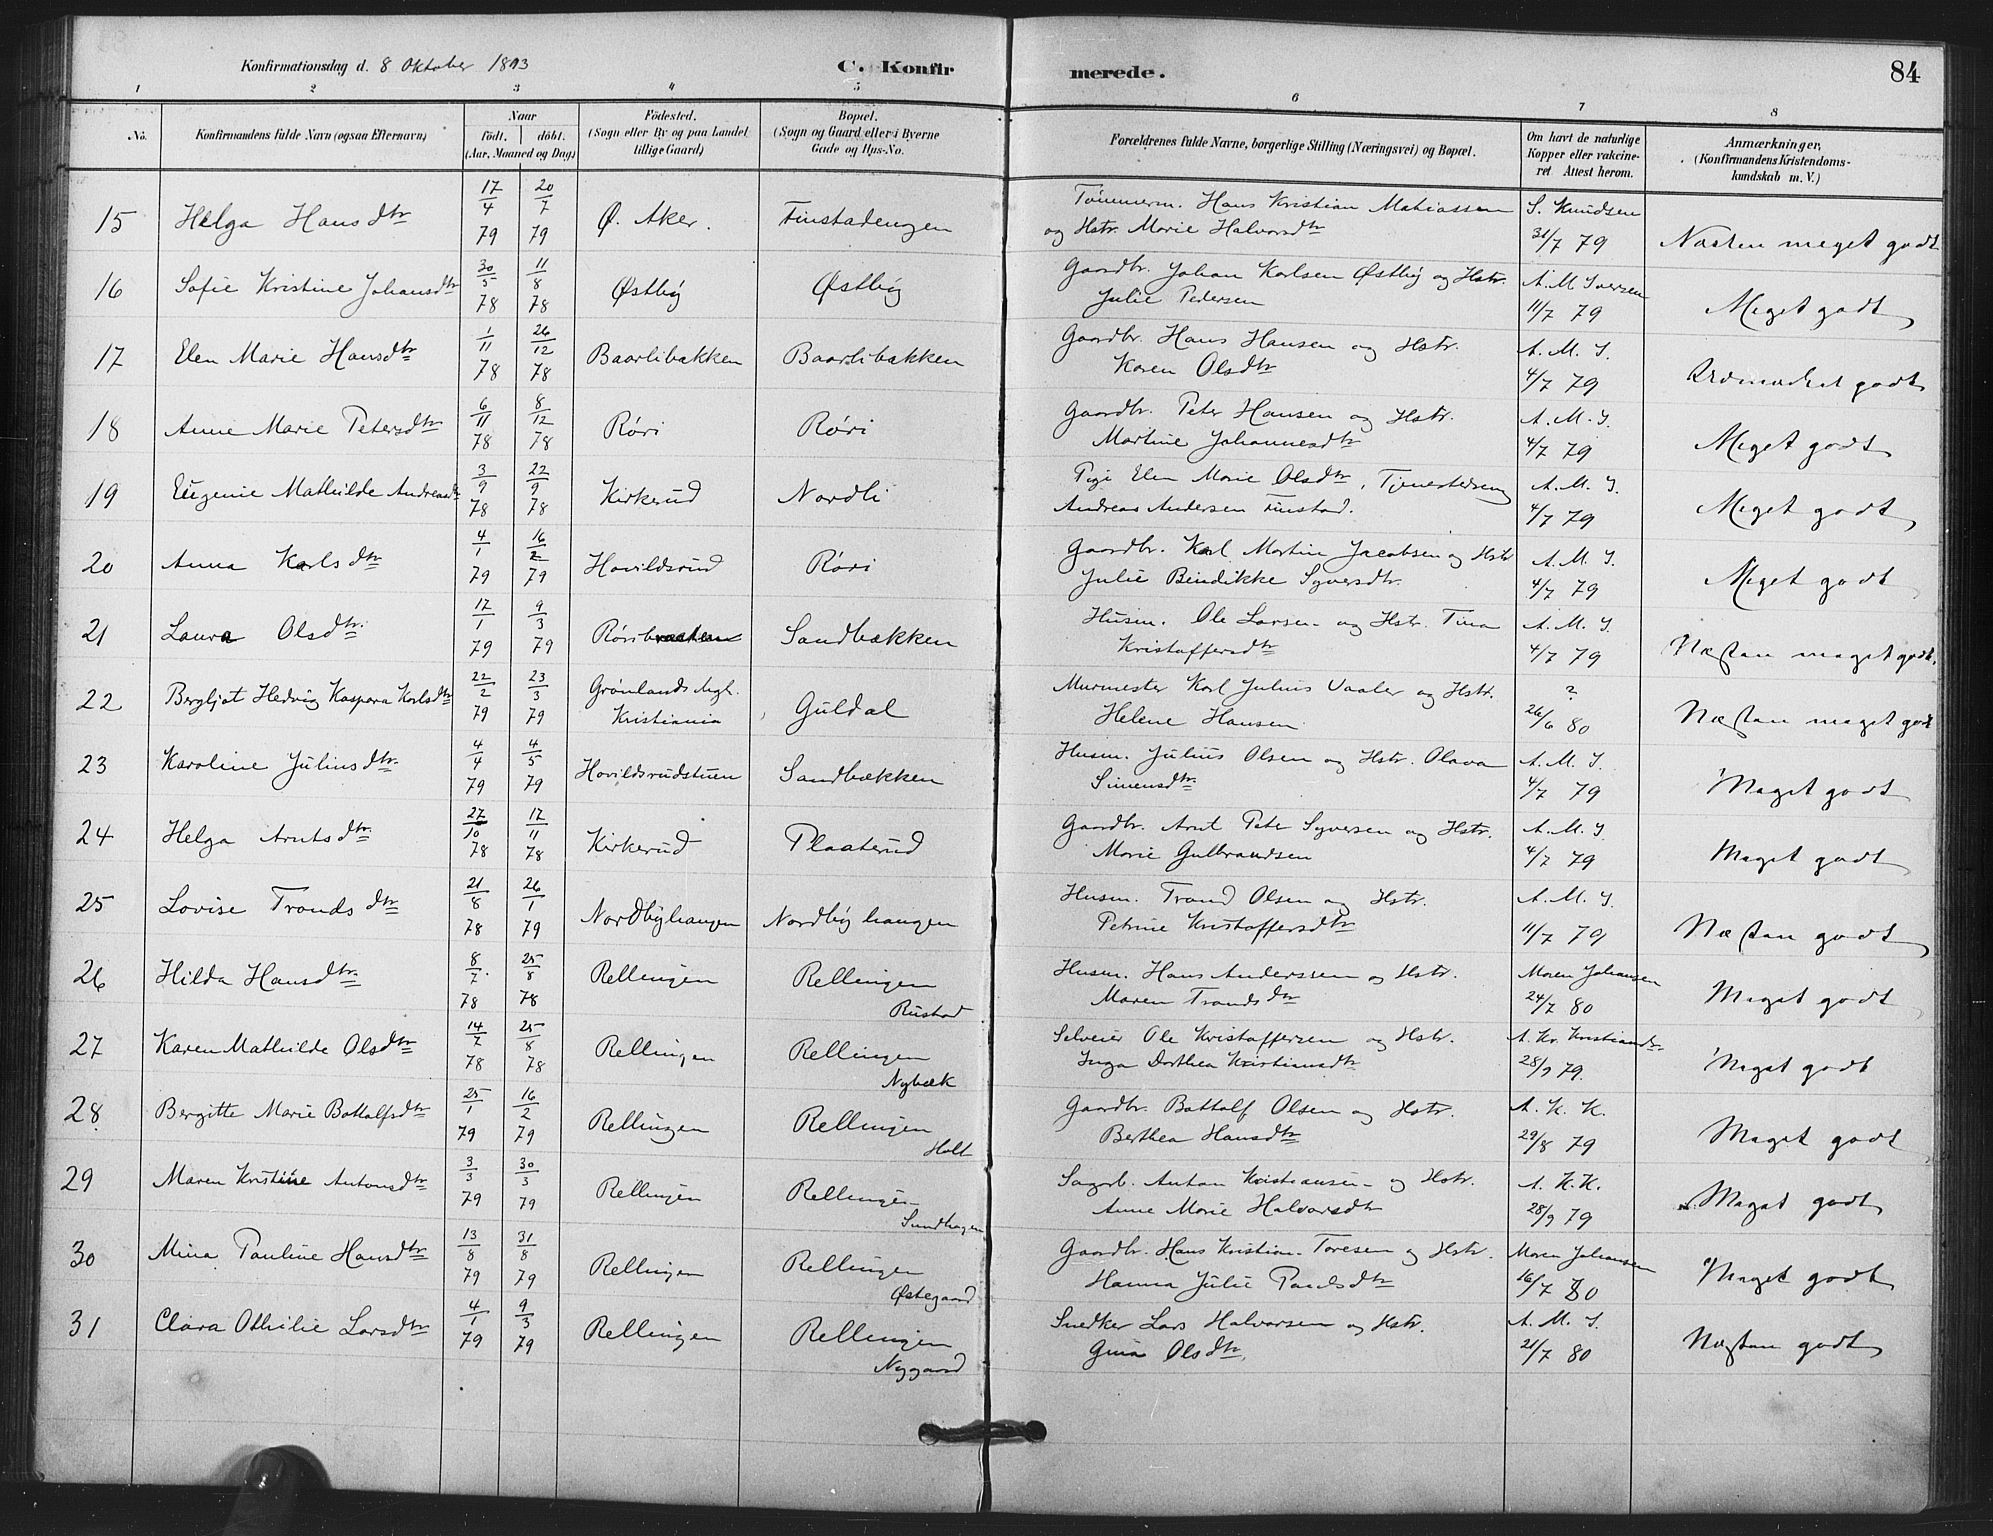 Konfirmationsdag d. 8 Oktober 1893
C. Konfirmerede.
84
1 2 3 4 5 6 7 8
No. Konfirmandens fulde Navn (ogsaa Efternavn) Naar født. døbt. (Aar, Maaned og Dag) Fødested. (Sogn eller By og paa Landet tillige Gaard) Bopæl. (Sogn og Gaard eller i Byerne Gade og Hus-No. Forældrenes fulde Navne, borgerlige Stilling (Næringsvei) og Bopæl. Om havt de naturlige Kopper eller vakcineret Attest herom. Anmærkninger, (Konfirmandens Kristendomskundskab m. V.)
15 Helga Hansdtr 17/4 79 20/7 79 Ø. Aker. Finstadengen Tømmerm. Hans Kristian Mathiassen S. Knudsen
og Hstr. Marie Halvorsdtr 31/7 79 Næsten meget godt
16 Sofie Kristine Johansdtr 30/5 78 11/8 78 Østby Østby Gaardbr. Johan Karlsen Østby og Hstr. A. M. Iversen
Julie Pedersen 11/7 79 Meget godt
17 Elen Marie Hansdtr 1/11 78 26/12 78 Baarlibakken Baarlibakken Gaardbr. Hans Hansen og Hstr. A. M. I.
Karen Olsdtr 4/7 79 godt
18 Anne Marie Petersdtr 6/11 78 8/12 78 Røri Røri Gaardbr. Peter Hansen og Hstr. A. M. I.
Martine Johannesdtr 4/7 79 Meget godt
19 Eugenie Mathilde Andreasdtr 3/9 78 22/9 78 Kirkerud Nordli Pige Elen Marie Olsdtr, A. M. I.
Andreas Andersen Finstad. 4/7 79 Meget godt
20 Anna Karlsdtr 4/1 79 16/2 79 Hovildsrud Røri Gaardbr. Karl Martin Jacobsen og Hstr A. M. I.
Julie Bendikke Syversdtr. 4/7 79 Meget godt
21 Laura Olsdtr. 17/1 79 9/3 79 Røribraaten Sandbækken Husm. Ole Larsen og Hstr. Tina A. M. I.
Kristoffersdtr 4/7 79 Næsten meget godt.
22 Bergljot Hedvig Kaspara Karlsdtr 22/2 79 23/3 79 Grønlands Mgh. Kristiania Guldal Murmester Karl Julius Vaaler og Hstr. ?
Helene Hansen. 26/6 80 Næsten meget godt
23 Karoline Juliusdtr. 4/4 79 4/5 79 Hovildsrudstuen Sandbækken Husm. Julius Olsen og Hstr. Olava A. M. I.
Simensdtr. 4/7 79 Meget godt
24 Helga Arntsdtr. 27/10 78 17/11 78 Kirkerud Plaaterud Gaardbr. Arnt Peter Syversen og Hstr. A. M. I
Marie Gulbrandsen 4/7 79 Meget godt
25 Lovise Trondsdtr 21/8 78 26/1 79 Nordbyhaugen Nordbyhaugen Husm. Trond Olsen og Hstr. A. M. I.
Petrine Kristoffersdtr 11/7 79 Næsten godt
26 Hilda Hansdtr. 8/7 78 25/8 78 Rellingen Rellingen Rustad Husm. Hans Anderssen og Hstr. Maren Johansen
Maren Trondsdtr 24/7 80 Meget godt
27 Karen Mathilde Olsdtr 14/7 78 25/8 78 Rellingen Rellingen Nybæk Selveier Ole Kristoffersen og Hstr. A. Kr. Kristians.
Inga Dorthea Kristiansdtr 28/9 79. Meget godt
28 Bergitte Marie Bottolfsdtr 25/1 79 16/2 79 Rellingen Rellingen Holt Gaardbr. Bottolf Olsen og Hstr. A. K. K.
Berthea Hansdtr 29/8 79 Meget godt
29 Maren Kristine Antonsdtr 3/3 79 30/3 79 Rellingen Rellingen Sundhagen Sagarb. Anton Kristiansen og Hstr. A. K. K.
Anne Marie Halvorsdtr 28/9 79 Meget godt
30 Mina Pauline Hansdtr 13/8 79 31/8 79 Rellingen Rellingen Østegaard Gaardbr. Hans Kristian Toresen og Hstr. Maren Johansen
Hanna Julie 16/7 80 Meget godt
31 Clara Othilie Larsdtr 4/1 79 9/3 79 Rellingen Rellingen Nygaard Snedker Lars Halvorsen og Hstr. A. M. I.
Gina Olsdtr. 21/7 80 Næsten godt